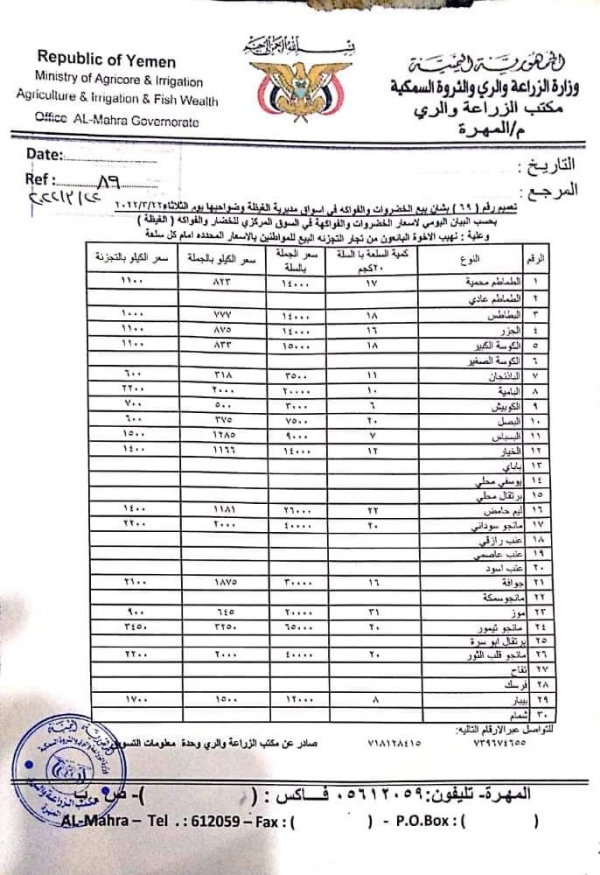 بسم الله الرحمن الرحيم
Republic of Yemen
Ministry of Agricore & Irrigation
Agriculture & Irrigation & Fish Wealth
Office AL-Mahra Governorate
الجمهورية اليمنية
وزارة الزراعة والري والثروة السمكية
مكتب الزراعة والري
م/المهرة
Date:
Ref : ٨٩
٢٠٢٢/٣/٢٢
التاريخ :
المرجع :
تعميم رقم ( ٦٩ ) بشان بيع الخضروات والفواكه في اسواق مديرية الغيظة وضواحيها يوم الثلاثاء ٢٠٢٢/٣/٢٢
بحسب البيان اليومي لاسعار الخضروات والفواكهة في السوق المركزي للخضار والفواكه ( الغيظة )
وعلية : نهيب الاخوة البائعون من تجار التجزئه البيع للمواطنين بالاسعار المحدده امام كل سلعة
الرقم النوع كمية السلعة با السلة ٢٠كجم سعر الجملة بالسلة سعر الكيلو بالجملة سعر الكيلو بالتجزئة
١ الطماطم محمية ١٧ ١٤٠٠٠ ٨٢٣ ١١٠٠
٢ الطماطم عادي
٣ البطاطس ١٨ ١٤٠٠٠ ٧٧٧ ١٠٠٠
٤ الجزر ١٦ ١٤٠٠٠ ٨٧٥ ١١٠٠
٥ الكوسة الكبير ١٨ ١٥٠٠٠ ٨٣٣ ١١٠٠
٦ الكوسة الصغير
٧ الباذنجان ١١ ٣٥٠٠ ٣١٨ ٦٠٠
٨ البامية ١٠ ٢٠٠٠٠ ٢٠٠٠ ٢٢٠٠
٩ الكوبيش ٦ ٣٠٠٠ ٥٠٠ ٧٠٠
١٠ البصل ٢٠ ٧٥٠٠ ٣٧٥ ٦٠٠
١١ البسباس ٧ ٩٠٠٠ ١٢٨٥ ١٥٠٠
١٢ الخيار ١٢ ١٤٠٠٠ ١١٦٦ ١٤٠٠
١٣ باباي
١٤ يوسفي محلي
١٥ برتقال محلي
١٦ ليم حامض ٢٢ ٢٦٠٠٠ ١١٨١ ١٤٠٠
١٧ مانجو سوداني ٢٠ ٤٠٠٠٠ ٢٠٠٠ ٢٢٠٠
١٨ عنب رازقي
١٩ عنب عاصمي
٢٠ عنب اسود
٢١ جوافة ١٦ ٣٠٠٠٠ ١٨٧٥ ٢١٠٠
٢٢ مانجوسمكة
٢٣ موز ٣١ ٢٠٠٠٠ ٦٤٥ ٩٠٠
٢٤ مانجو تيمور ٢٠ ٦٥٠٠٠ ٣٢٥٠ ٣٤٥٠
٢٥ برتقال ابو سرة
٢٦ مانجو قلب الثور ٢٠ ٤٠٠٠٠ ٢٠٠٠ ٢٢٠٠
٢٧ تفاح
٢٨ فرسك
٢٩ بيبار ٨ ١٢٠٠٠ ١٥٠٠ ١٧٠٠
٣٠ شمام
للتواصل عبرالارقام التاليه:
٧٣٩٦٧٤٦٥٥ ٧١٨١٢٨٤١٥ صادر عن مكتب الزراعة والري وحدة معلومات التسويق
المهرة- تليفون:٠٥٦١٢٠٥٩ فاكس : ( )- ص. ب
AL-Mahra – Tel .: 612059 – Fax : ( ) - P.O.Box : ( )